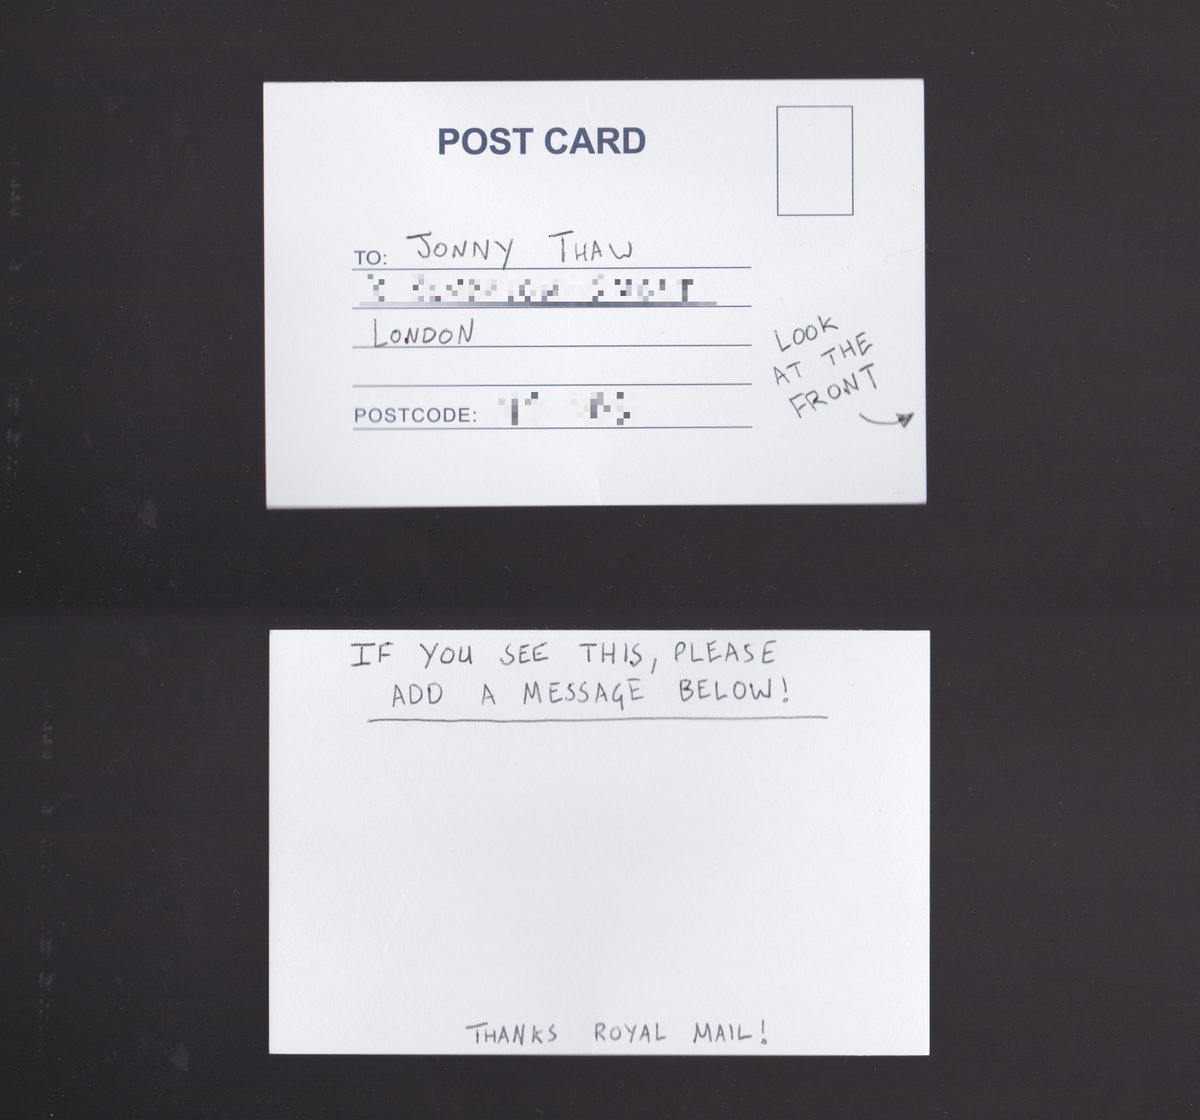 POST CARD
TO: JONNY THAW
LONDON
POSTCODE:
LOOK
AT THE
FRONT
IF YOU SEE THIS, PLEASE
ADD A MESSAGE BELOW!
THANKS ROYAL MAIL!